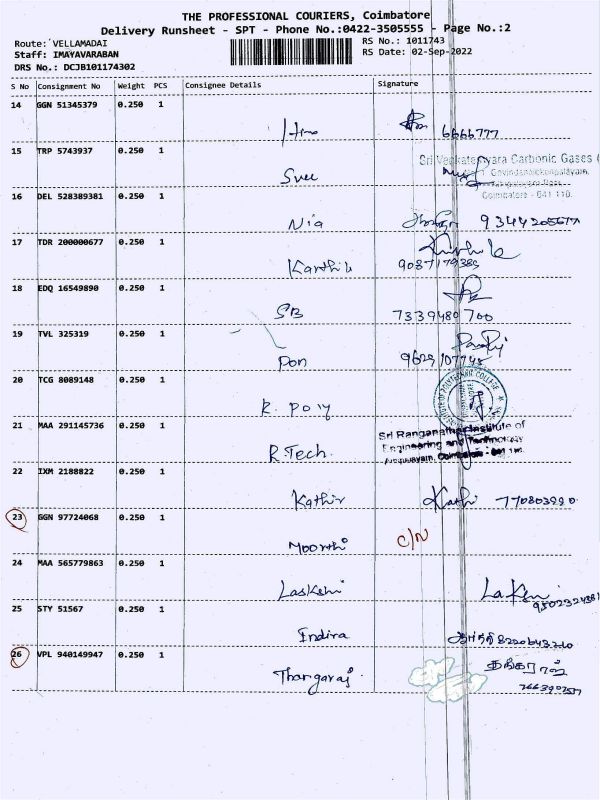 THE PROFESSIONAL COURIERS, Coimbatore
Delivery Runsheet - SPT - Phone No.:0422-3505555 - Page No.:2
Route: VELLAMADAI
RS No.: 1011743
Staff: IMAYAVARABAN
RS Date: 02-Sep-2022
DRS No.: DCJB101174302
S No Consignment No Weight PCS Consignee Details Signature
14 GGN 51345379 0.250 1
6666777
15 TRP 5743937 0.250 1
Sri Venkateshwara Carbonic Gases (
Sree
Coimbatore - 641 110.
16 DEL 528389381 0.250 1
Nia
17 TDR 200000677 0.250 1
Karthik 9087179389
18 EDQ 16549890 0.250 1
SB 7339480700
19 TVL 325319 0.250 1
Pon 9629107745
20 TCG 8089148 0.250 1
R. Poly
21 MAA 291145736 0.250 1
Sri Ranganathar Institute of
Engineering and Technology
R.Tech.
22 IXM 2188822 0.250 1
Kathir Kathi
23 GGN 97724068 0.250 1
Moorthi C/N
24 MAA 565779863 0.250 1
25 STY 51567 0.250 1
Indira 8220643210
26 VPL 940149947 0.250 1
Thangaraj தங்கராஜ்